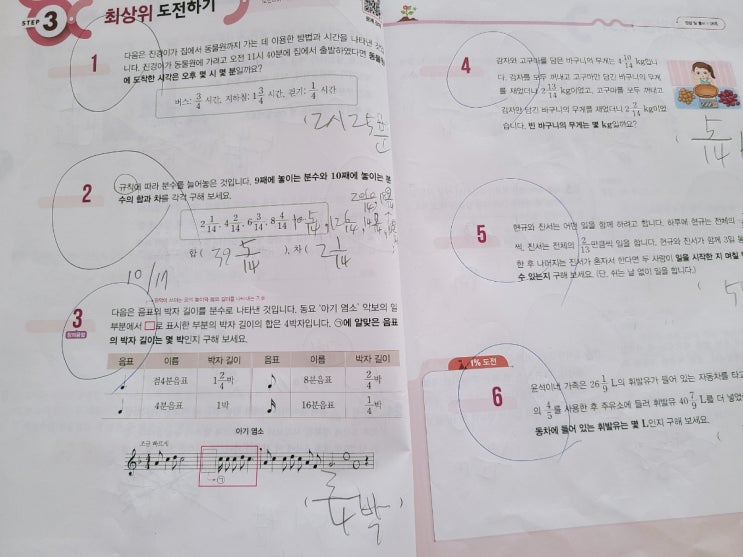 STEP 3 최상위 도전하기
1
다음은 진경이가 집에서 동물원까지 가는 데 이용한 방법과 시간을 나타낸 것
니다. 진경이가 동물원에 가려고 오전 11시 40분에 집에서 출발하였다면 동물원
에 도착한 시각은 오후 몇 시 몇 분일까요?
버스: 3/4 시간, 지하철: 1 3/4 시간, 걷기: 1/4 시간
2
규칙에 따라 분수를 늘어놓은 것입니다. 9째에 놓이는 분수와 10째에 놓이는 분
수의 합과 차를 각각 구해 보세요.
2 1/14, 4 2/14, 6 3/14, 8 4/14
합 ( 39 5/14 ), 차 ( 2 1/14
10/17
3
다음은 음표와 박자 길이를 분수로 나타낸 것입니다. 동요 '아기 염소' 악보의 일
부분에서 □로 표시한 부분의 박자 길이의 합은 4박자입니다. ㉠에 알맞은 음표
의 박자 길이는 몇 박인지 구해 보세요.
음표 이름 박자 길이 음표 이름 박자 길이
점4분음표 1 2/4박 8분음표 2/4박
4분음표 1박 16분음표 1/4박
아기 염소
조금 빠르게
㉠
4
감자와 고구마를 담은 바구니의 무게는 4 10/14 kg입니
다. 감자를 모두 꺼내고 고구마만 담긴 바구니의 무게
를 재었더니 2 13/14 kg이었고, 고구마를 모두 꺼내고
감자만 담긴 바구니의 무게를 재었더니 2 2/14 kg이었
습니다. 빈 바구니의 무게는 몇 kg일까요?
( 5/14
5
현규와 진서는 어떤 일을 함께 하려고 합니다. 하루에 현규는 전체의
씩, 진서는 전체의 2/13만큼씩 일을 합니다. 현규와 진서가 함께 3일 동
한 후 나머지는 진서가 혼자서 한다면 두 사람이 일을 시작한 지 며칠
수 있는지 구해 보세요. (단, 쉬는 날 없이 일을 합니다.)
1% 도전
6
윤석이네 가족은 26 1/9 L의 휘발유가 들어 있는 자동차를 타고
의 4/5를 사용한 후 주유소에 들러 휘발유 40 7/9 L를 더 넣었
동차에 들어 있는 휘발유는 몇 L인지 구해 보세요.